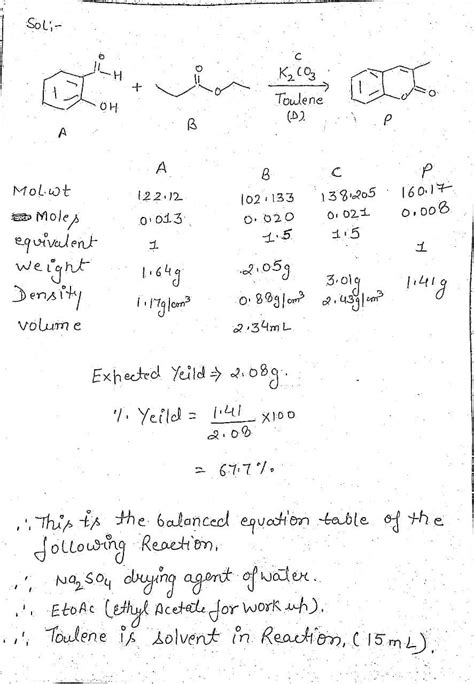 Sol:-
O
H
OH
A
+
O
O
B
C
K2CO3
Toulene
(D)
O
O
P
A B C P
Mol.wt 122.12 102.133 138.205 160.17
Moles 0.013 0.020 0.021 0.008
equivalent 1 1.5 1.5 1
weight 1.64g 2.05g 3.01g 1.41g
Density 1.17g/cm³ 0.89g/cm³ 2.43g/cm³
volume 2.34mL
Expected Yeild ⇒ 2.08g.
% Yeild = 1.41/2.08 ×100
= 67.7%.
∴ This is the balanced equation table of the
following Reaction.
∴ Na2SO4 drying agent of water.
∴ EtoAc (Ethyl Acetate for work up).
∴ Toulene is solvent in Reaction, (15mL).